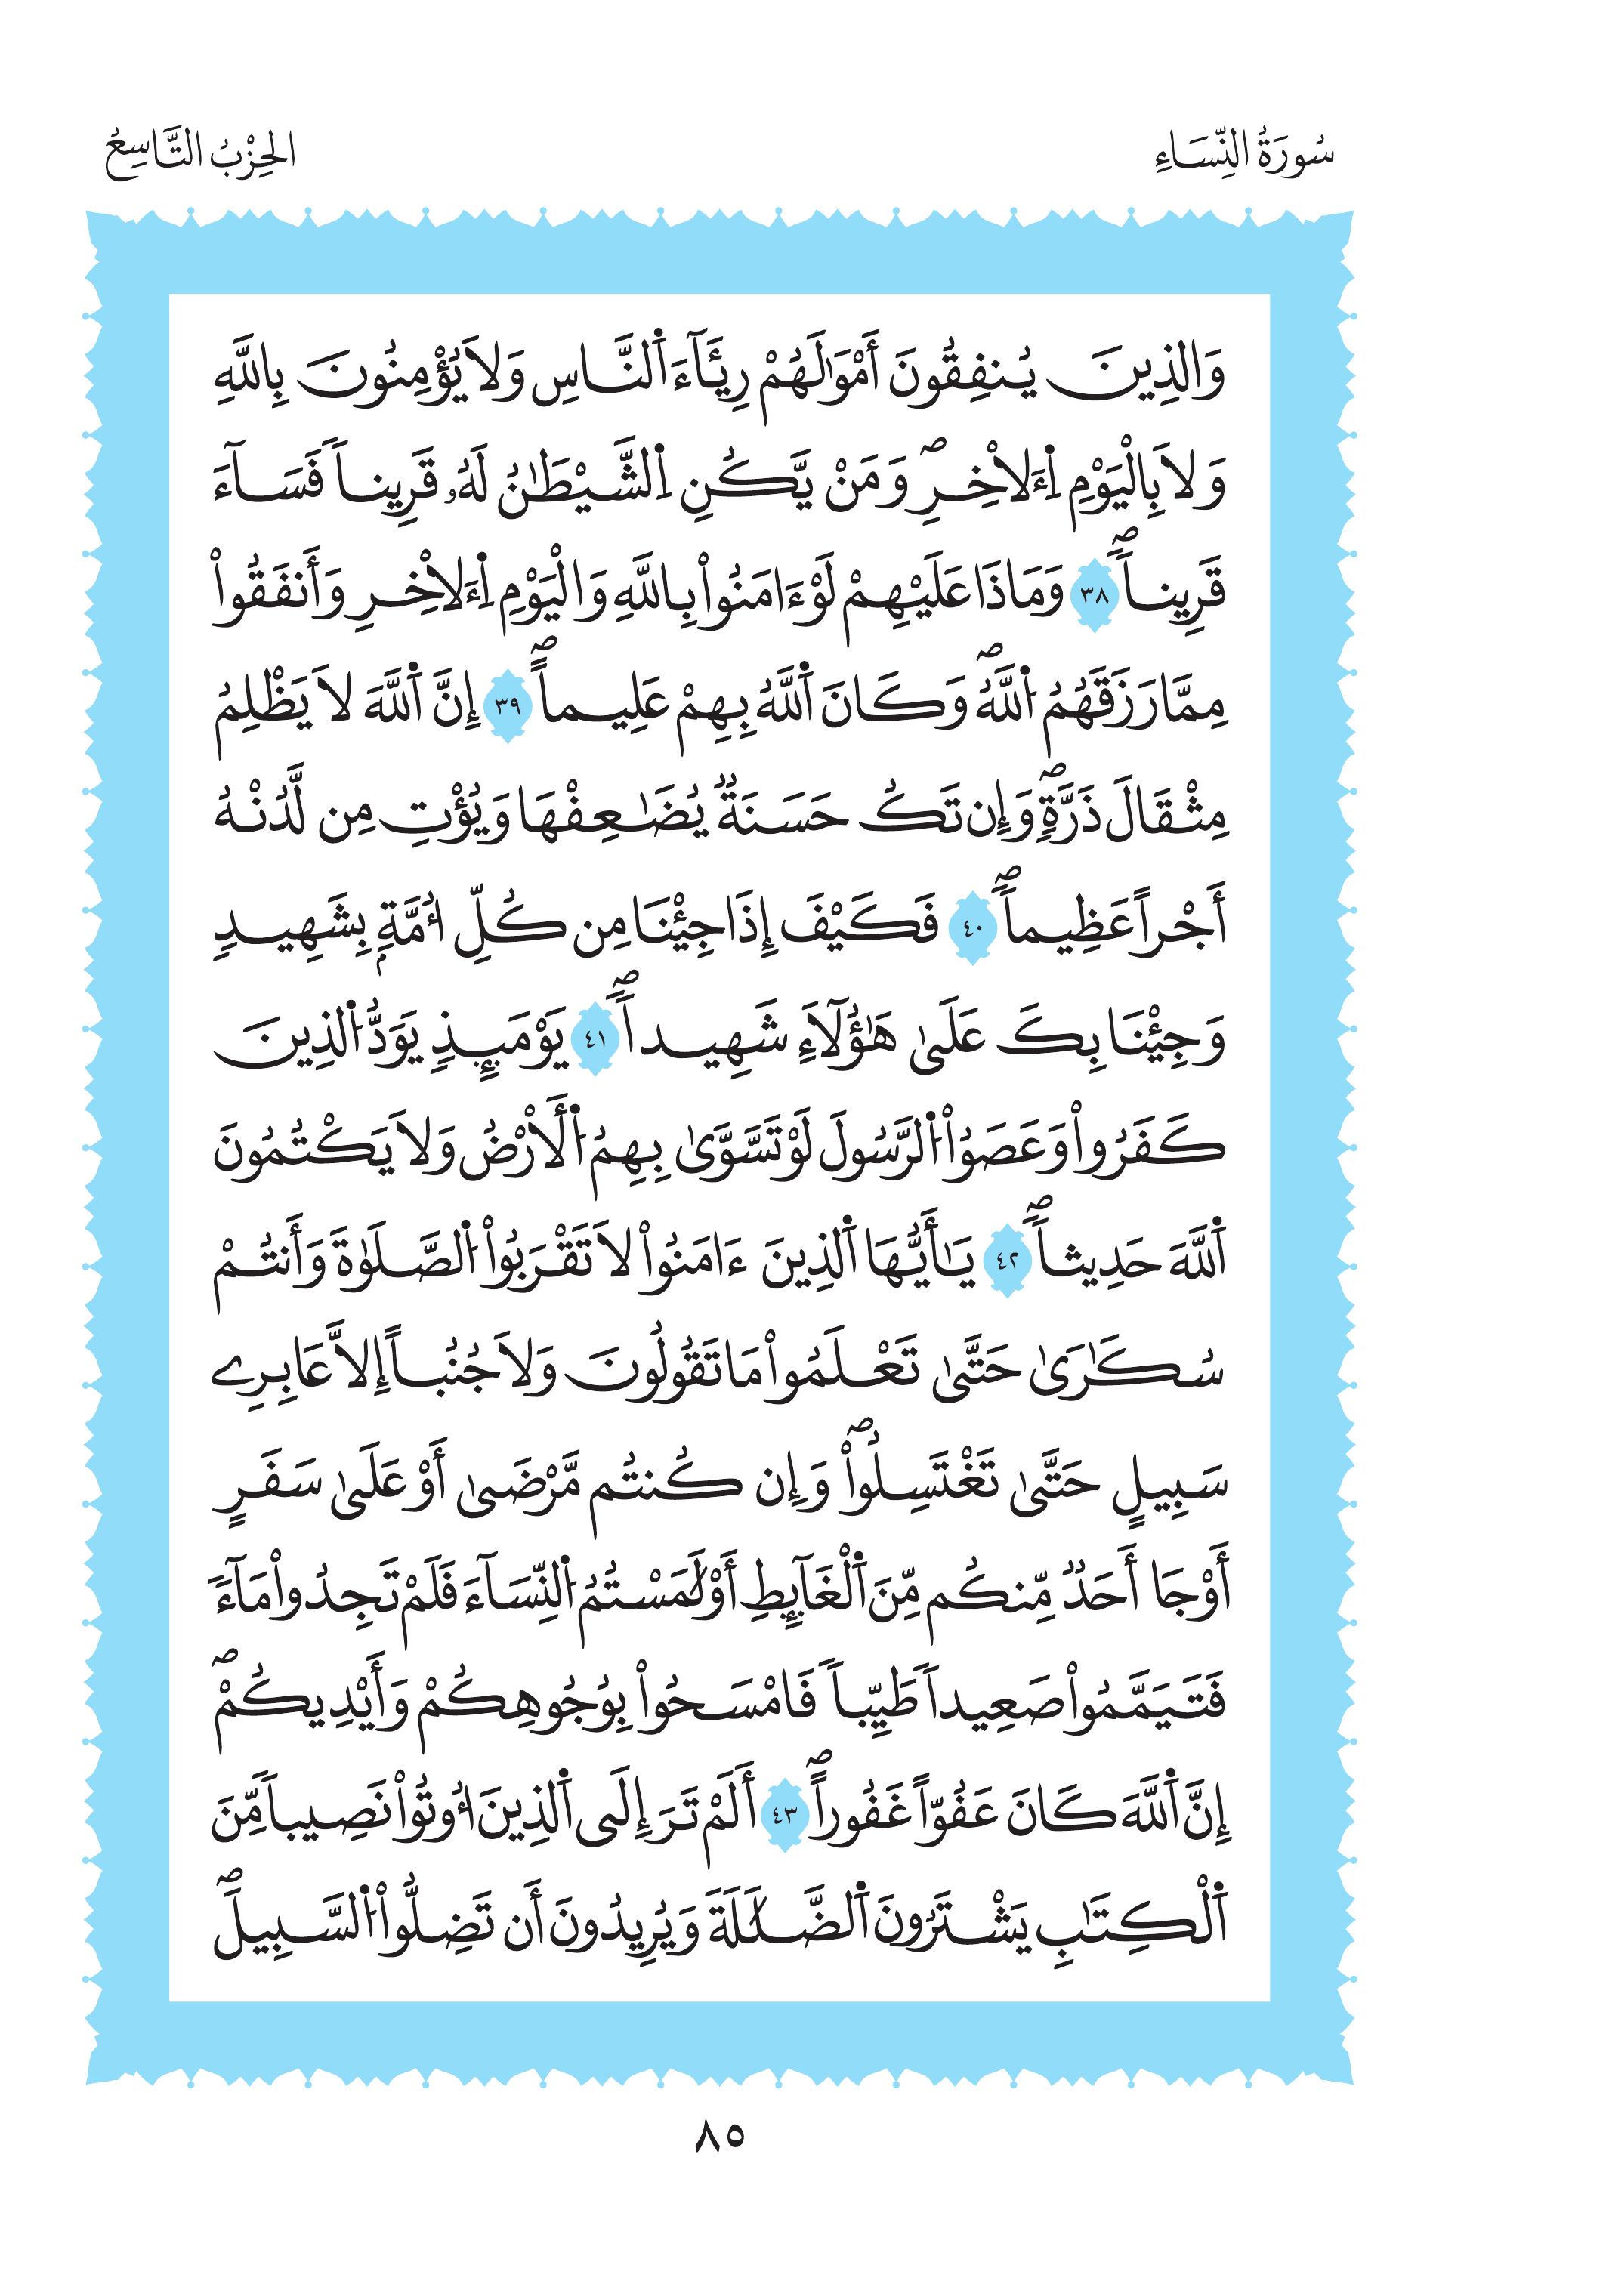 سُورَةُ النِّسَاءِ
الحِزْبُ التَّاسِعُ
وَالذِينَ يُنفِقُونَ أَمْوَٰلَهُمْ رِئَآءَ اَ۬لنَّاسِ وَلَا يُؤْمِنُونَ بِاللَّهِ
وَلَا بِالْيَوْمِ اِ۬ءَلَاخِرِۖ وَمَنْ يَّكُنِ اِ۬لشَّيْطَٰنُ لَهُۥ قَرِيناٗ فَسَآءَ
قَرِيناٗۖ ٣٨ وَمَاذَا عَلَيْهِمْ لَوْ ءَامَنُواْ بِاللَّهِ وَالْيَوْمِ اِ۬ءَلَاخِرِ وَأَنفَقُواْ
مِمَّا رَزَقَهُمُ اُ۬للَّهُۖ وَكَانَ اَ۬للَّهُ بِهِمْ عَلِيماًۖ ٣٩ إِنَّ اَ۬للَّهَ لَا يَظْلِمُ
مِثْقَالَ ذَرَّةٍۖ وَإِن تَكُ حَسَنَةٞ يُضَٰعِفْهَا وَيُؤْتِ مِن لَّدُنْهُ
أَجْراً عَظِيماٗۖ ٤٠ فَكَيْفَ إِذَا جِئْنَا مِن كُلِّ أُمَّةِۢ بِشَهِيدٖ
وَجِئْنَا بِكَ عَلَىٰ هَٰؤُلَآءِ شَهِيداٗۖ ٤١ يَوْمَئِذٖ يَوَدُّ اُ۬لذِينَ
كَفَرُواْ وَعَصَوُاْ اُ۬لرَّسُولَ لَوْ تَسَّوَّىٰ بِهِمُ اُ۬لَارْضُ وَلَا يَكْتُمُونَ
اَ۬للَّهَ حَدِيثاٗۖ ٤٢ يَٰأَيُّهَا اَ۬لذِينَ ءَامَنُواْ لَا تَقْرَبُواْ اُ۬لصَّلَوٰةَ وَأَنتُمْ
سُكَٰرَىٰ حَتَّىٰ تَعْلَمُواْ مَا تَقُولُونَ وَلَا جُنُباً إِلَّا عَابِرِے
سَبِيلٍ حَتَّىٰ تَغْتَسِلُواْۖ وَإِن كُنتُم مَّرْضَىٰ أَوْ عَلَىٰ سَفَرٍ
أَوْ جَا أَحَدٞ مِّنكُم مِّنَ اَ۬لْغَآئِطِ أَوْ لَٰمَسْتُمُ اُ۬لنِّسَآءَ فَلَمْ تَجِدُواْ مَآءٗ
فَتَيَمَّمُواْ صَعِيداٗ طَيِّباٗ فَامْسَحُواْ بِوُجُوهِكُمْ وَأَيْدِيكُمْۖ
إِنَّ اَ۬للَّهَ كَانَ عَفُوّاً غَفُوراًۖ ٤٣ أَلَمْ تَرَ إِلَى اَ۬لذِينَ أُوتُواْ نَصِيباٗ مِّنَ
اَ۬لْكِتَٰبِ يَشْتَرُونَ اَ۬لضَّلَٰلَةَ وَيُرِيدُونَ أَن تَضِلُّواْ اُ۬لسَّبِيلَۖ
٨٥